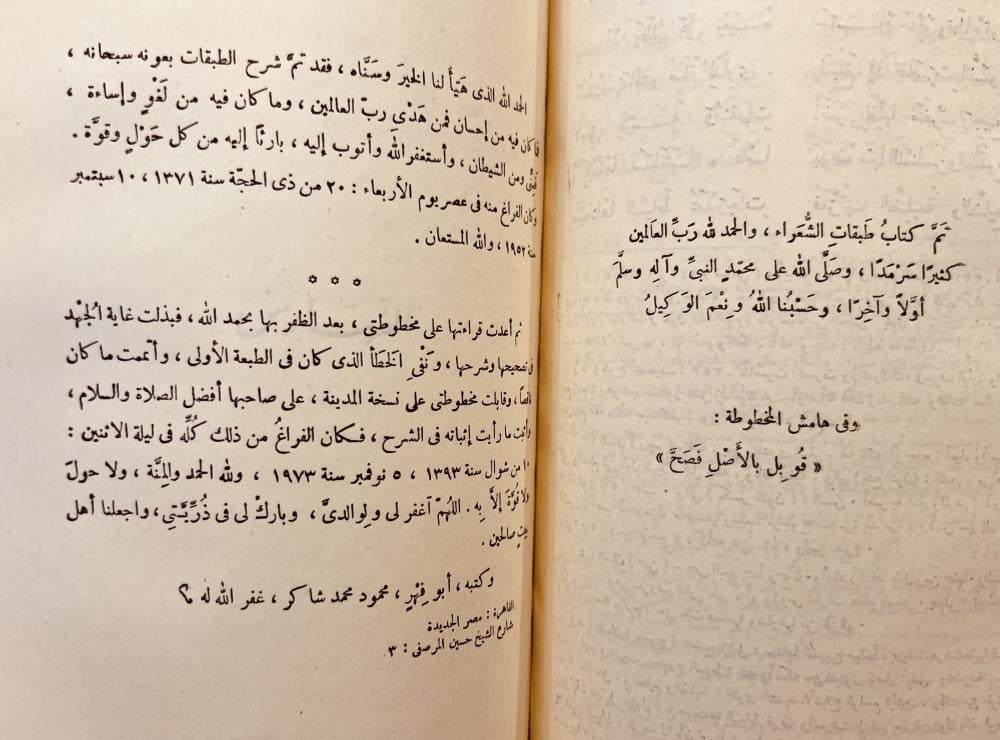 تَمَّ كتابُ طَبقاتِ الشُّعَراء ، والحمد لله رَبِّ العَالمين
كثيرًا سَرْمَدًا ، وصَلَّى الله على محمّدٍ النبيِّ وآلِهِ وسلَّمَ
أوَّلاً وآخِرًا ، وحَسْبُنا اللهُ ونِعْمَ الوَكِيلُ
وفى هامش المخطوطة :
« قُوبل بالأَصْلِ فَصَحَّ »
الحمد لله الذى هَيَّأَ لنا الخيرَ وسَنَّاه ، فقد تمَّ شرح الطبقات بعونه سبحانه ،
فما كان فيه من إحسان فمن هَدْى ربّ العالمين ، وما كان فيه من لَغْوٍ وإساءة ،
فمِنِّى ومن الشيطان ، وأستغفر الله وأتوب إليه ، بارئًا إليه من كل حَوْلٍ وقوَّة .
وكان الفراغ منه فى عصر يوم الأربعاء : ٢٠ من ذى الحجّة سنة ١٣٧١ ، ١٠ سبتمبر
سنة ١٩٥٢ ، والله المستعان .
ثم أعدت قراءتها على مخطوطتى ، بعد الظفر بها بحمد الله ، فبذلت غاية الجُهْد
فى تصحيحها وشرحها ، ونَفْىِ الخَطَأ الذى كان فى الطبعة الأولى ، وأتممت ما كان
ناقصًا ، وقابلت مخطوطتى على نسخة المدينة ، على صاحبها أفضل الصلاة والسلام ،
وأثبت ما رأيت إثباته فى الشرح ، فكان الفراغُ من ذلك كُلِّه فى ليلة الاثنين :
من شوال سنة ١٣٩٣ ، ٥ نوفمبر سنة ١٩٧٣ ، ولله الحمد والمِنَّة ، ولا حولَ
ولا قُوَّةَ إلاَّ بِه . اللهُمّ آغفر لى ولِوالدىَّ ، وبارِكْ لى فى ذُرِّيَّتِي، واجعلنا أهل
بيتٍ صالحين .
وكتبه ، أبو فِهْرٍ ، محمود محمد شاكر ، غفر الله له
القاهرة : مصر الجديدة
شارع الشيخ حسين المرصفى : ٣